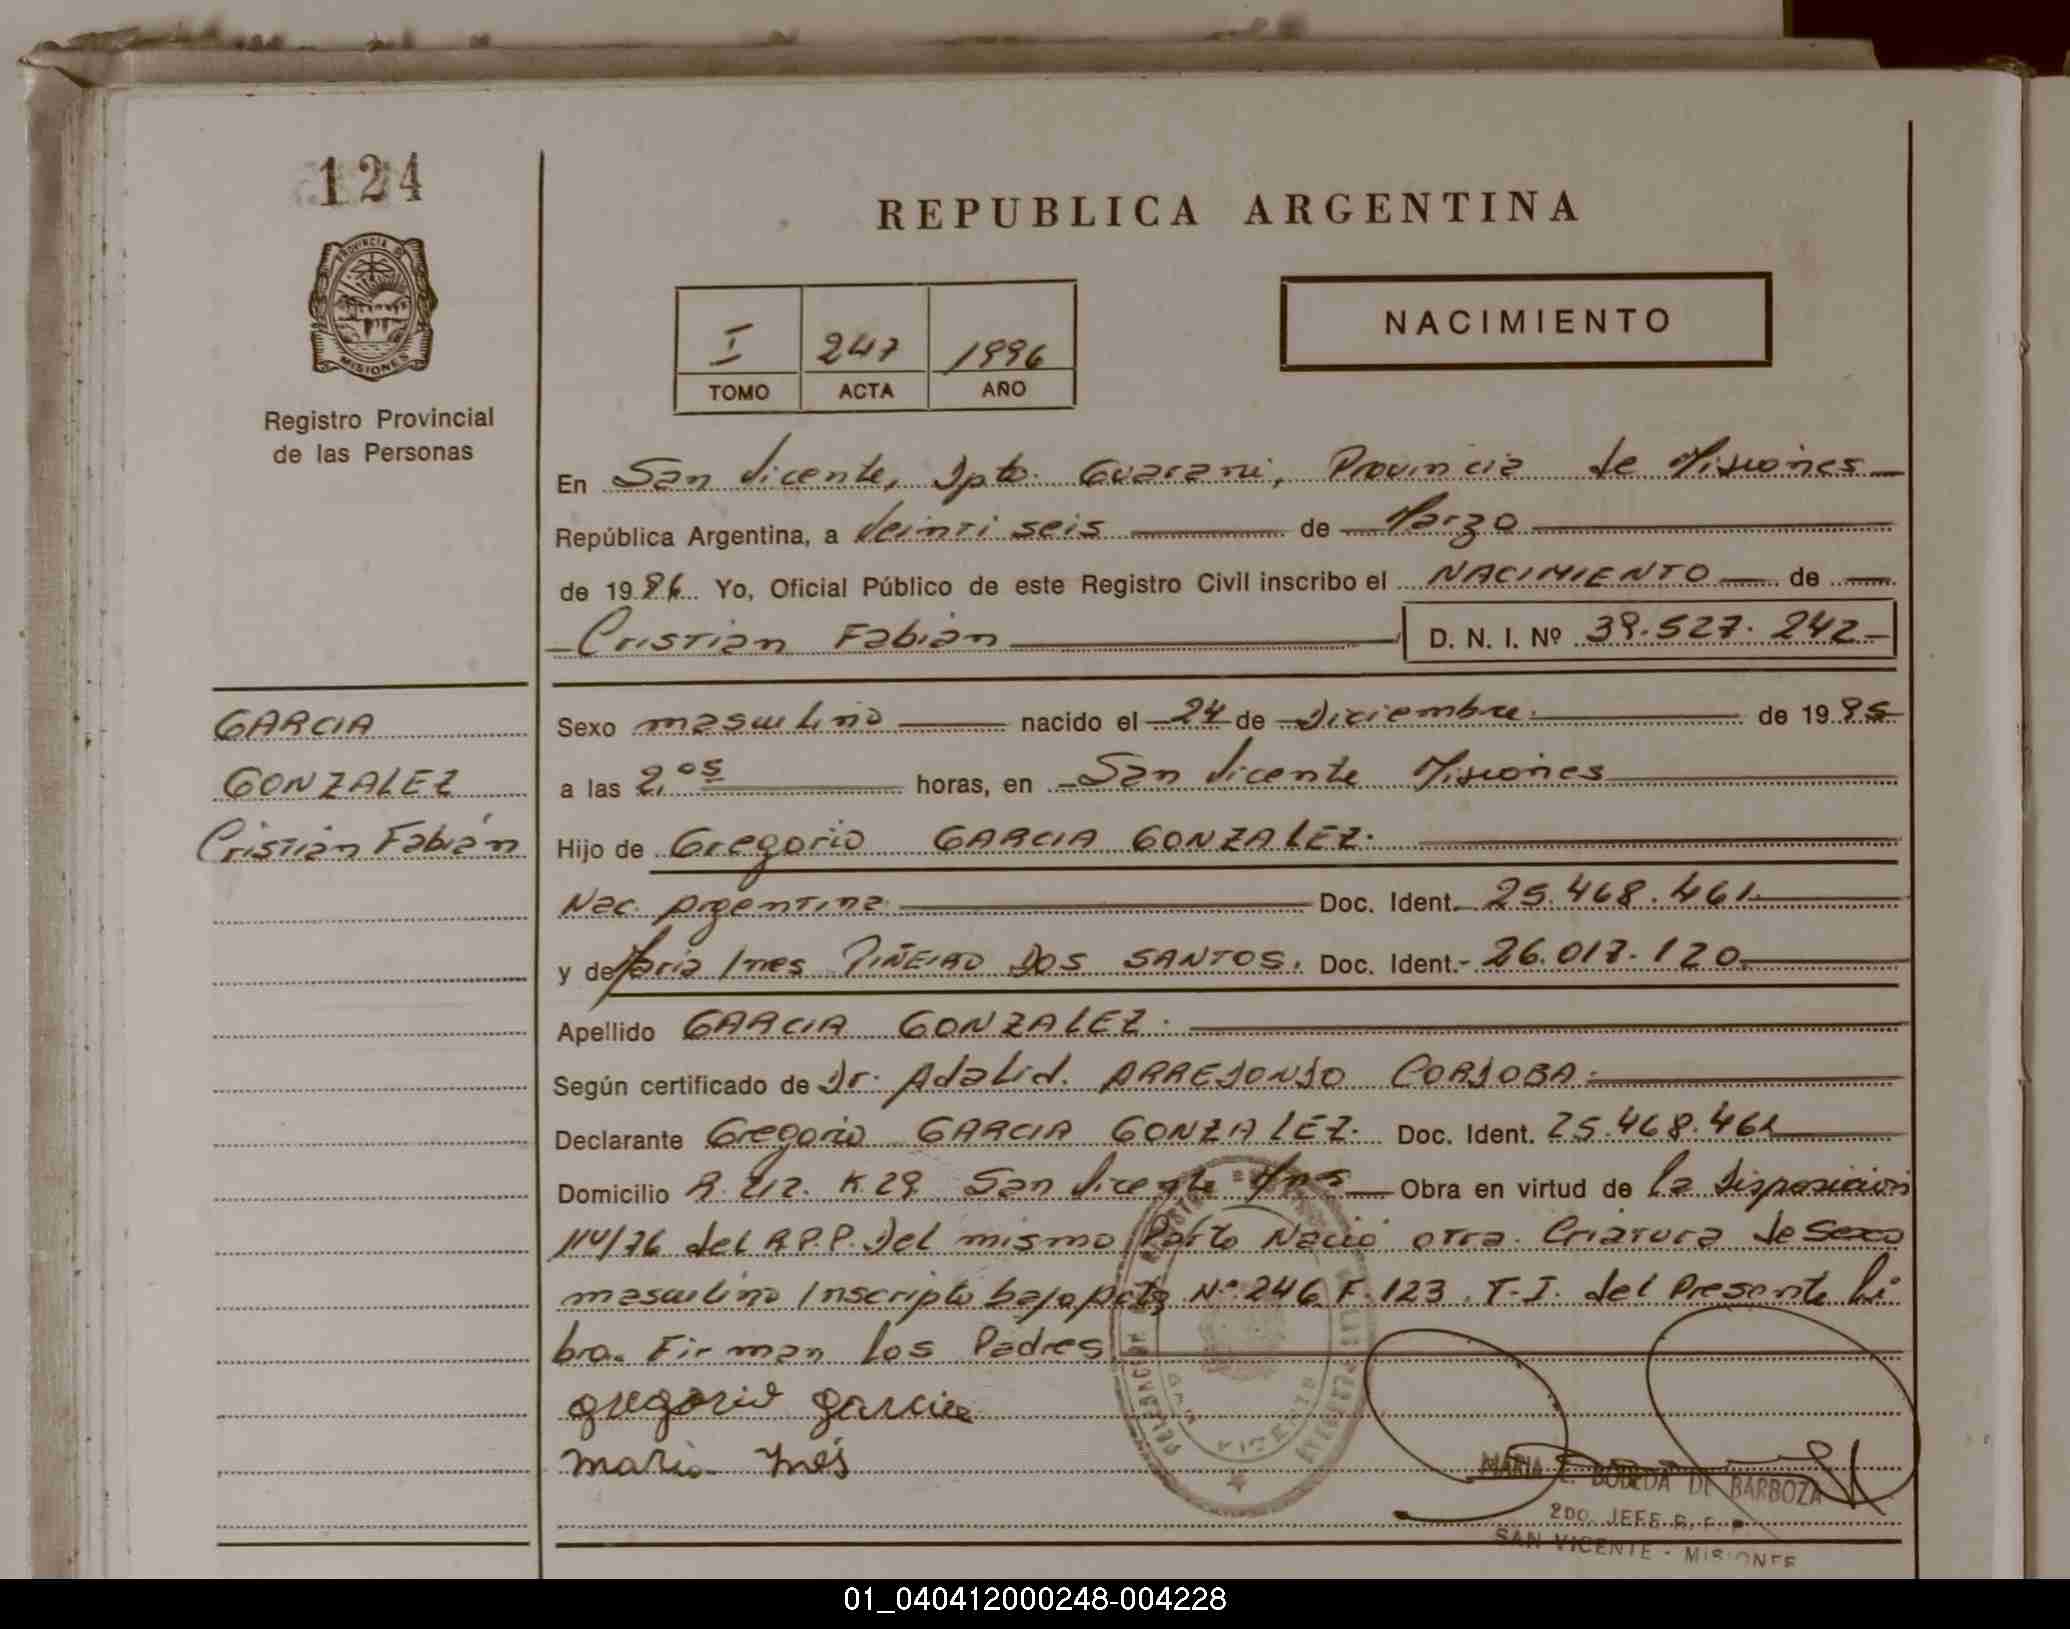 124
PROVINCIA D
MISIONES
Registro Provincial
de las Personas
REPUBLICA ARGENTINA
I 247 1996
TOMO ACTA AÑO
NACIMIENTO
En San Vicente, Dpto. Guarani, Provincia de Misiones
República Argentina, a Veinti seis de Marzo
de 1996 Yo, Oficial Público de este Registro Civil inscribo el NACIMIENTO de
Cristian Fabian D. N. I. Nº 39.527.242
GARCIA
GONZALEZ
Cristian Fabián
Sexo masculino nacido el 24 de Diciembre de 1995
a las 2,05 horas, en San Vicente Misiones
Hijo de Gregorio GARCIA GONZALEZ.
Nac. Argentina Doc. Ident. 25.468.461
y de Maria Ines PIÑEIRO DOS SANTOS. Doc. Ident. 26.017.120
Apellido GARCIA GONZALEZ.
Según certificado de Dr. Adalid. ARREDONDO CORDOBA.
Declarante Gregorio GARCIA GONZALEZ. Doc. Ident. 25.468.461
Domicilio R. 212. K 29 San Vicente Mnes Obra en virtud de la Disposicion
114/76 del R.P.P. Del mismo Parto Nacio otra Criatura de Sexo
masculino Inscripto bajo Acta Nº 246 F. 123. T-I. del Presente Li
bro. Firman los Padres
gregorio garcia
maria Inés
MARIA E. BOBEDA DE BARBOZA
2DO. JEFE R. P. P
SAN VICENTE - MISIONES
01_040412000248-004228